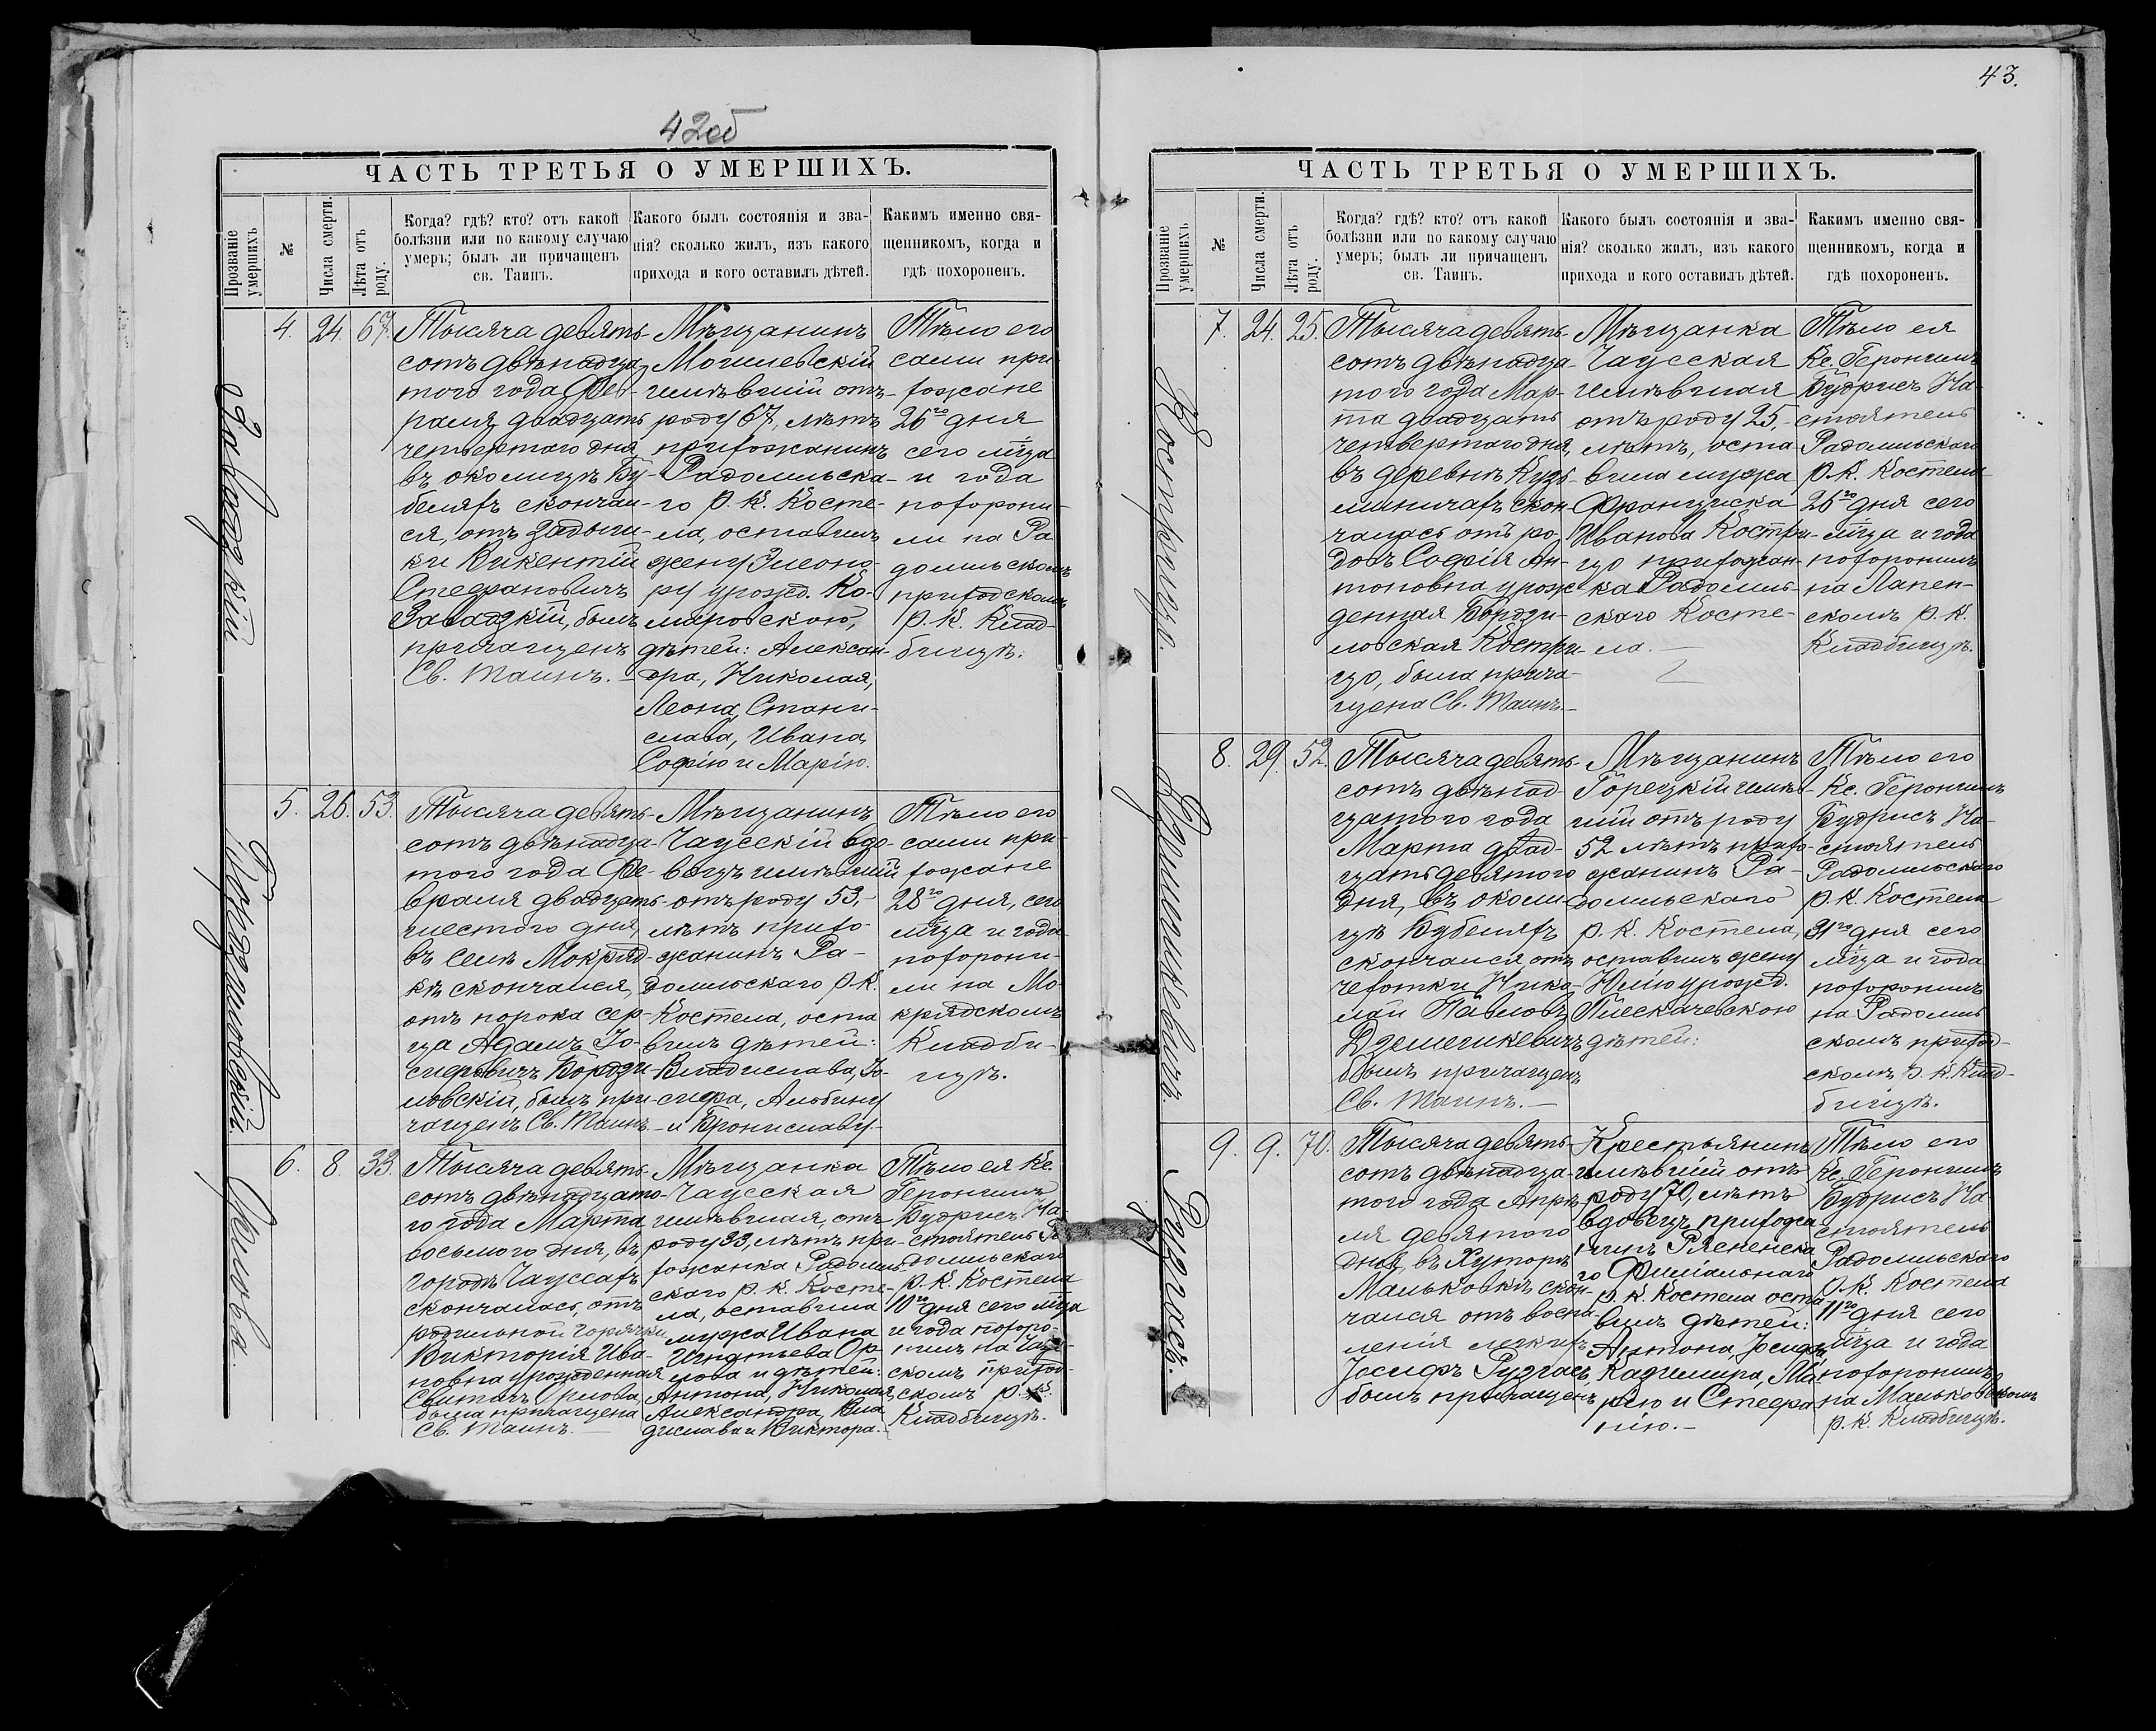 42об
ЧАСТЬ ТРЕТЬЯ О УМЕРШИХЪ.
Прозваніе умершихъ
№
Числа смерти.
Лѣта отъ роду.
Когда? гдѣ? кто? отъ какой
болѣзни или по какому случаю
умеръ; былъ ли причащенъ
св. Таинъ.
Какого былъ состоянія и зва-
нія? сколько жилъ, изъ какого
прихода и кого оставилъ дѣтей.
Какимъ именно свя-
щенникомъ, когда и
гдѣ похороненъ.
Завадзкій
4. 24. 67.
Тысяча девять-
сотъ двѣнадца-
того года Фев-
раля двадцать
четвертаго дня
въ околицѣ Бу-
беляхъ скончал-
ся, отъ задыш-
ки Викентій
Стефановичъ
Завадзкій, былъ
причащенъ
Св. Таинъ. –
Мѣщанинъ
Могилевскій
имѣвшій отъ-
роду 67, лѣтъ
прихожанинъ
Радомльска-
го р. к. Косте-
ла, оставилъ
жену Элеоно-
ру урожд. Ко-
мировскою,
дѣтей: Алексан-
дра, Николая,
Леона, Стани-
слава, Ивана,
Софію и Марію.
Тѣло его
сами при-
хожане
26го дня
сего м̃ца
и года
похорони-
ли на Ра-
домльскомъ
приходскомъ
р. к. Клад-
бищѣ.
Бордзиловскій.
5. 26. 53.
Тысяча девять-
сотъ двѣнадца-
того года Фе-
враля двадцать
шестого дня,
въ селѣ Мокряд-
кѣ скончался,
отъ порока сер-
ца Адамъ Іо-
сифовичъ Бордзи-
ловскій, былъ при-
чащенъ Св. Таинъ.–
Мѣщанинъ
Чаусскій вдо-
вецъ имѣвшій
отъ роду 53,-
лѣтъ прихо-
жанинъ Ра-
домльскаго р. к.
Костела, оста
вилъ дѣтей:
Владислава, Іо-
сифа, Альбину
и Брониславу.
Тѣло его
сами при-
хожане
28го дня, сего
м̃ца и года
похорони-
ли на Мо-
крядскомъ
Кладби-
щѣ.
Орлова.
6. 8. 33.
Тысяча девять-
сотъ двѣнадцато-
го года Марта
восьмого дня, въ
городѣ Чауссахъ
скончалась, отъ
родильной горячки
Викторія Ива-
новна урожденная
Свитачъ Орлова,
была причащена
Св. Таинъ. –
Мѣщанка
Чаусская
имѣвшая, отъ-
роду 33, лѣтъ при-
хожанка Радомль-
скаго р. к. Косте-
ла, оставила
мужа Ивана
Игнатьева Ор-
лова и дѣтей:
Антона, Николая,
Александра, Вла
дислава и Виктора.–
Тѣло ея Кс.
Геронимъ
Будрисъ На-
стоятель Ра
домльскаго
р. к. Костела
10го дня сего м̃ца
и года похоро-
нилъ на Чаус-
скомъ приход-
скомъ р. к.
Кладбищѣ.
43.
ЧАСТЬ ТРЕТЬЯ О УМЕРШИХЪ.
Прозваніе умершихъ
№
Числа смерти.
Лѣта отъ роду.
Когда? гдѣ? кто? отъ какой
болѣзни или по какому случаю
умеръ; былъ ли причащенъ
св. Таинъ.
Какого былъ состоянія и зва-
нія? сколько жилъ, изъ какого
прихода и кого оставилъ дѣтей.
Какимъ именно свя-
щенникомъ, когда и
гдѣ похороненъ.
Кострицо.
7. 24. 25.
Тысяча девять-
сотъ двѣнадца-
того года Мар-
та двадцать
четвертаго дня,
въ деревнѣ Кузь-
миничахъ скон-
чалась отъ ро-
довъ Софія Ан-
тоновна урож-
денная Бордзи-
ловская Костри
цо, была прича-
щена Св. Таинъ.–
Мѣщанка
Чаусская
имѣвшая
отъ роду 25,-
лѣтъ, оста
вила мужа
Францишка
Иванова Костри-
цо прихожан-
ка Радомль-
скаго Косте-
ла. –
Тѣло ея
Кс. Геронимъ
Будрисъ На-
стоятель
Радомльскаго
р. к. Костела
26го дня сего
м̃ца и года
похоронилъ
на Лапен-
скомъ р. к.
Кладбищѣ.
Дземешкевичъ.
8. 29. 52.
Тысяча девять-
сотъ двѣнад-
цатого года
Марта двад-
цать девятого
дня, въ околи-
цѣ Бубеляхъ
скончался отъ
чехотки Нико-
лай Павловъ
Дземешкевичъ
былъ причащенъ
Св. Таинъ. –
Мѣщанинъ
Горецкій имѣв-
шій отъ роду
52 лѣтъ прихо-
жанинъ Ра-
домльскаго
р. к. Костела,
оставилъ жену
Юлію урожд.
Плескачевскою
дѣтей:
Тѣло его
Кс. Геронимъ
Будрисъ На-
стоятель
Радомльскаго
р. к. Костела
31го дня сего
м̃ца и года
похоронилъ
на Радомль
скомъ приход-
скомъ р. к. Клад-
бищѣ.
Рузгасъ.
9. 9. 70.
Тысяча девять-
сотъ двѣнадца-
того года Апрѣ-
ля девятого
дня, въ Хуторѣ
Мальковкѣ скон-
чался отъ воспа-
ленія легкихъ
Іосифъ Рузгасъ,
былъ причащенъ
Крестьянинъ
имѣвшій отъ
роду 70, лѣтъ
вдовецъ прихожа
нинъ Рясненска
го Филіальнаго
р. к. Костела оста
вилъ дѣтей:
Антона, Іосифа,
Кадзимира, Ма
рію и Стефа
нію. –
Тѣло его
Кс. Геронимъ
Будрисъ На-
стоятель
Радомльскаго
р. к. Костела
11го дня сего
м̃ца и года
похоронилъ
на Мальковскомъ
р. к. Кладбищѣ.